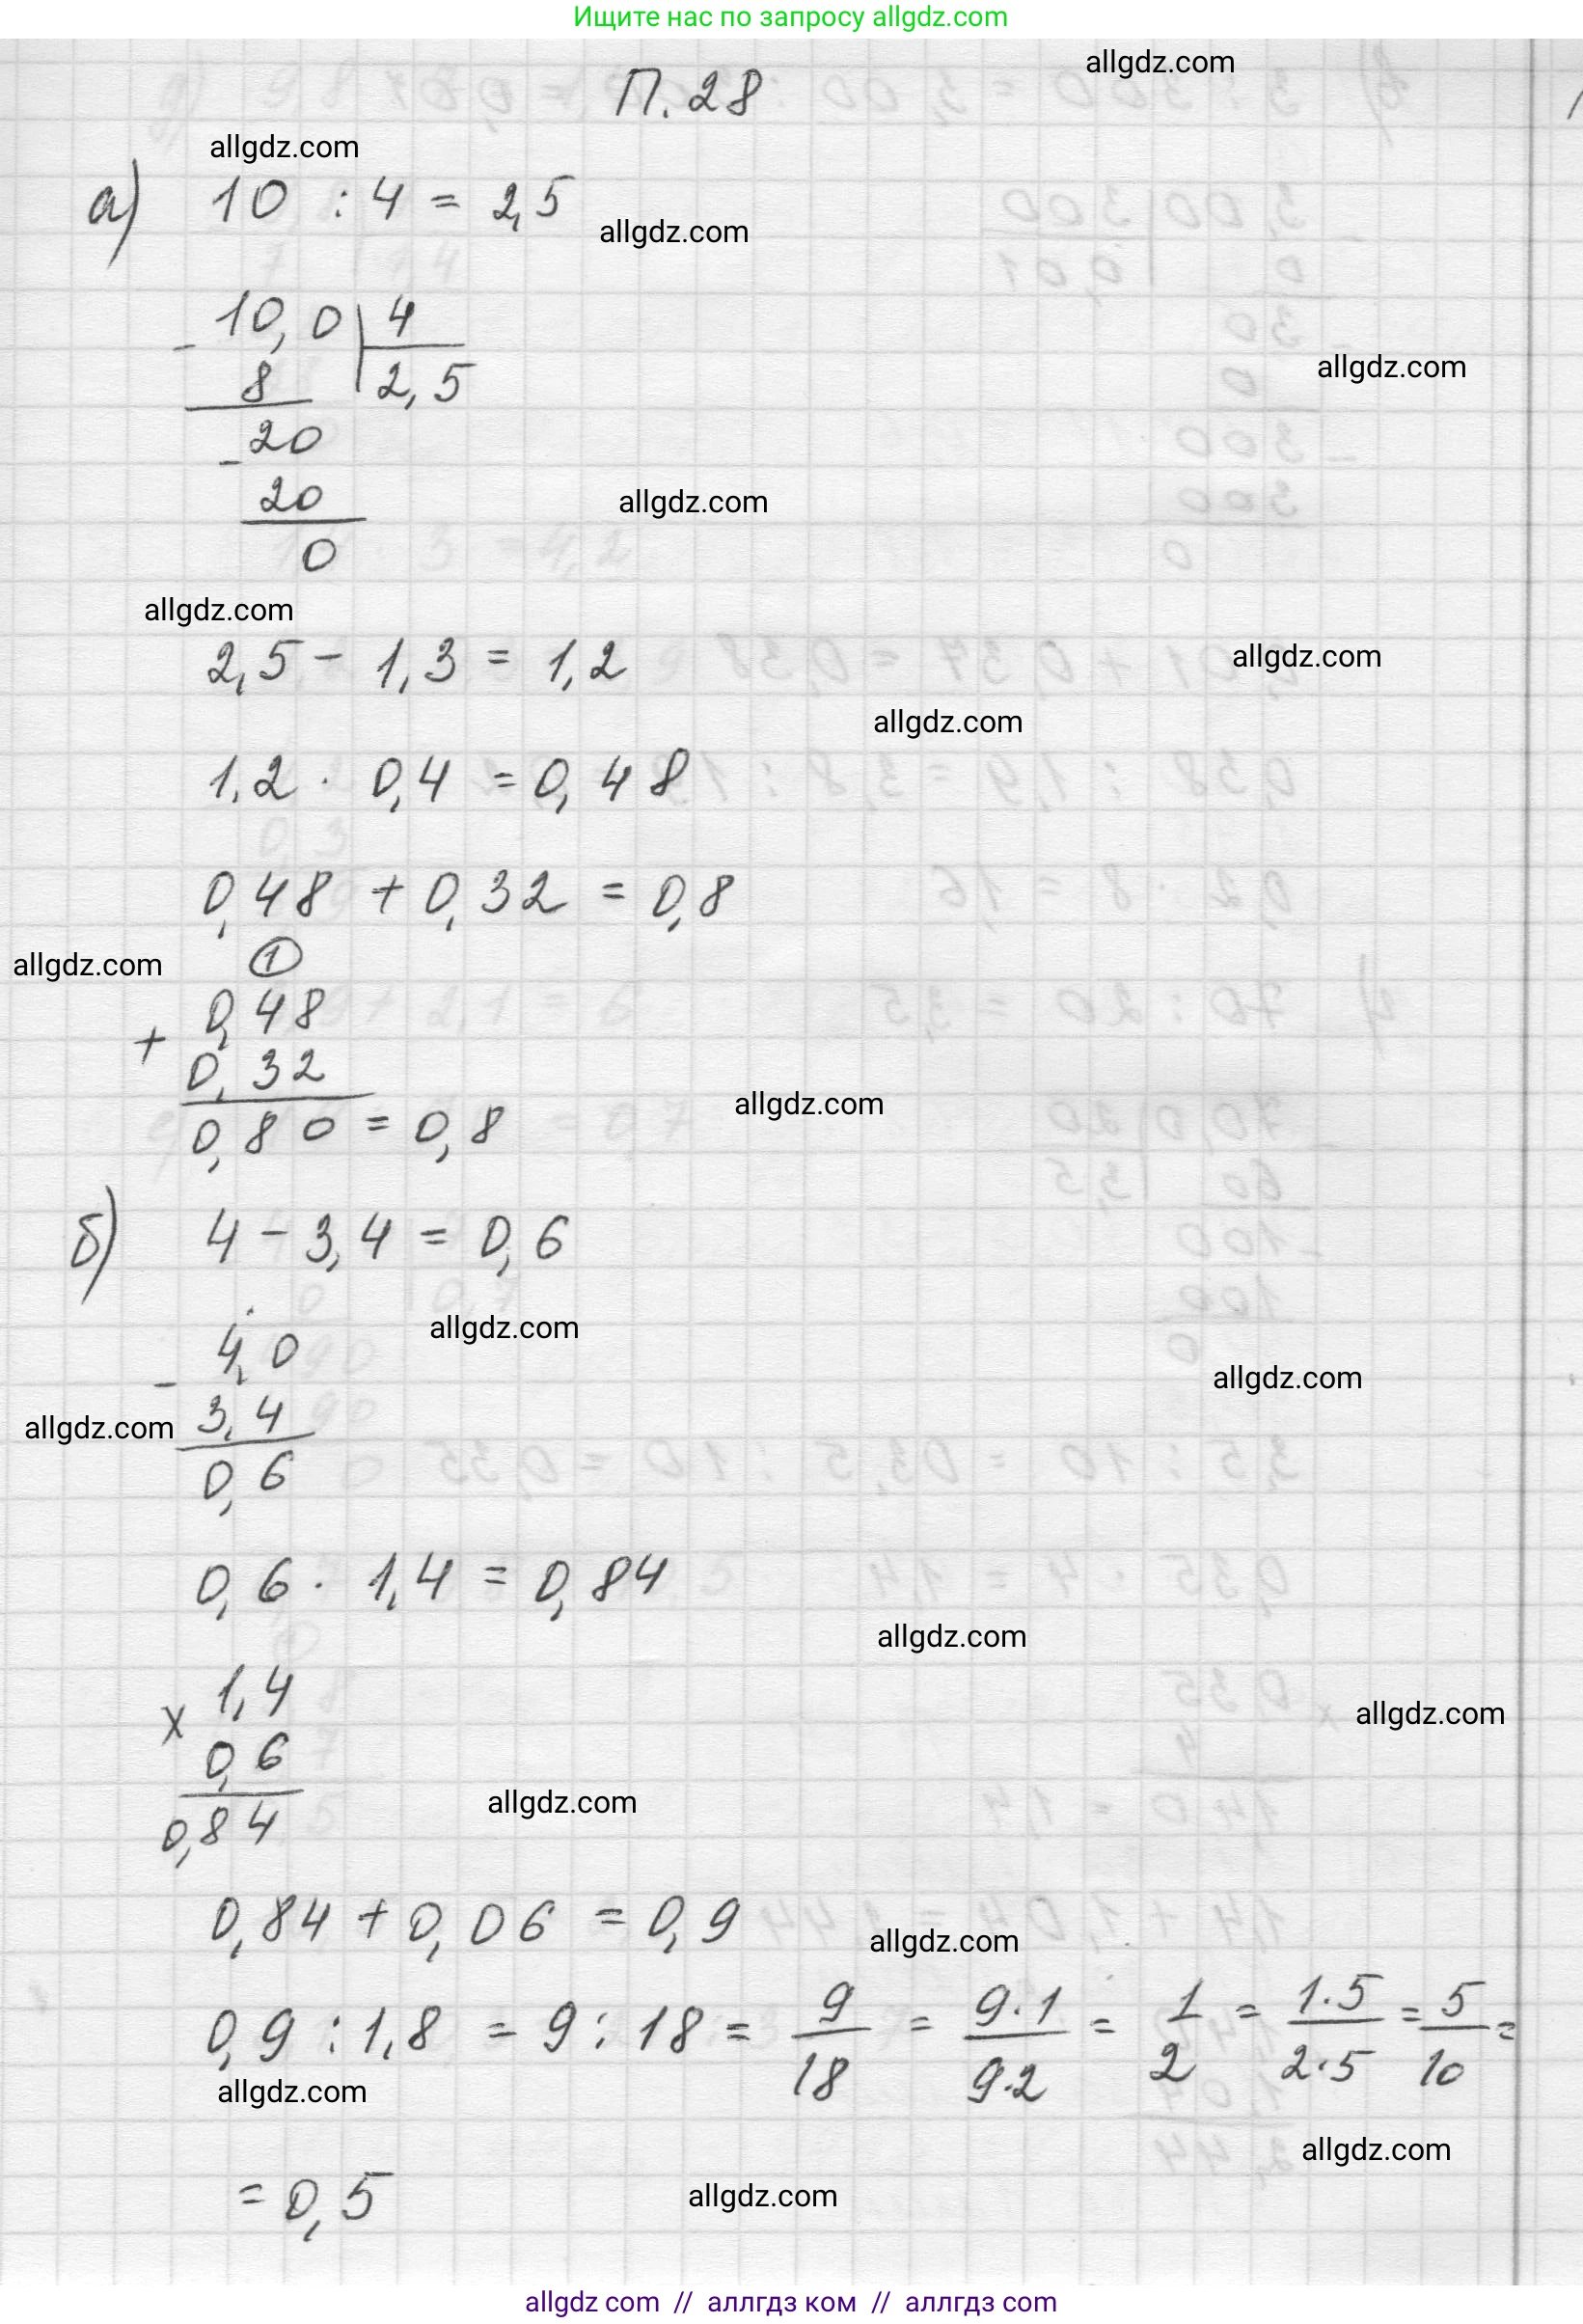 Ищите нас по запросу allgdz.com
allgdz.com
П. 28
allgdz.com
а) 10 : 4 = 2,5
allgdz.com
- 10,0 | 4
allgdz.com
8 | 2,5
- 20
20
allgdz.com
0
allgdz.com
2,5 - 1,3 = 1,2
allgdz.com
allgdz.com
1,2 · 0,4 = 0,48
0,48 + 0,32 = 0,8
allgdz.com
1
+ 0,48
0,32
allgdz.com
0,80 = 0,8
б) 4 - 3,4 = 0,6
allgdz.com
- 4,0
allgdz.com
allgdz.com
3,4
0,6
0,6 · 1,4 = 0,84
allgdz.com
x 1,4
allgdz.com
0,6
allgdz.com
0,84
0,84 + 0,06 = 0,9
allgdz.com
0,9 : 1,8 = 9 : 18 = 9/18 = 9·1/9·2 = 1/2 = 1·5/2·5 = 5/10 =
allgdz.com
allgdz.com
= 0,5
allgdz.com
allgdz com // аллгдз ком // аллгдз com